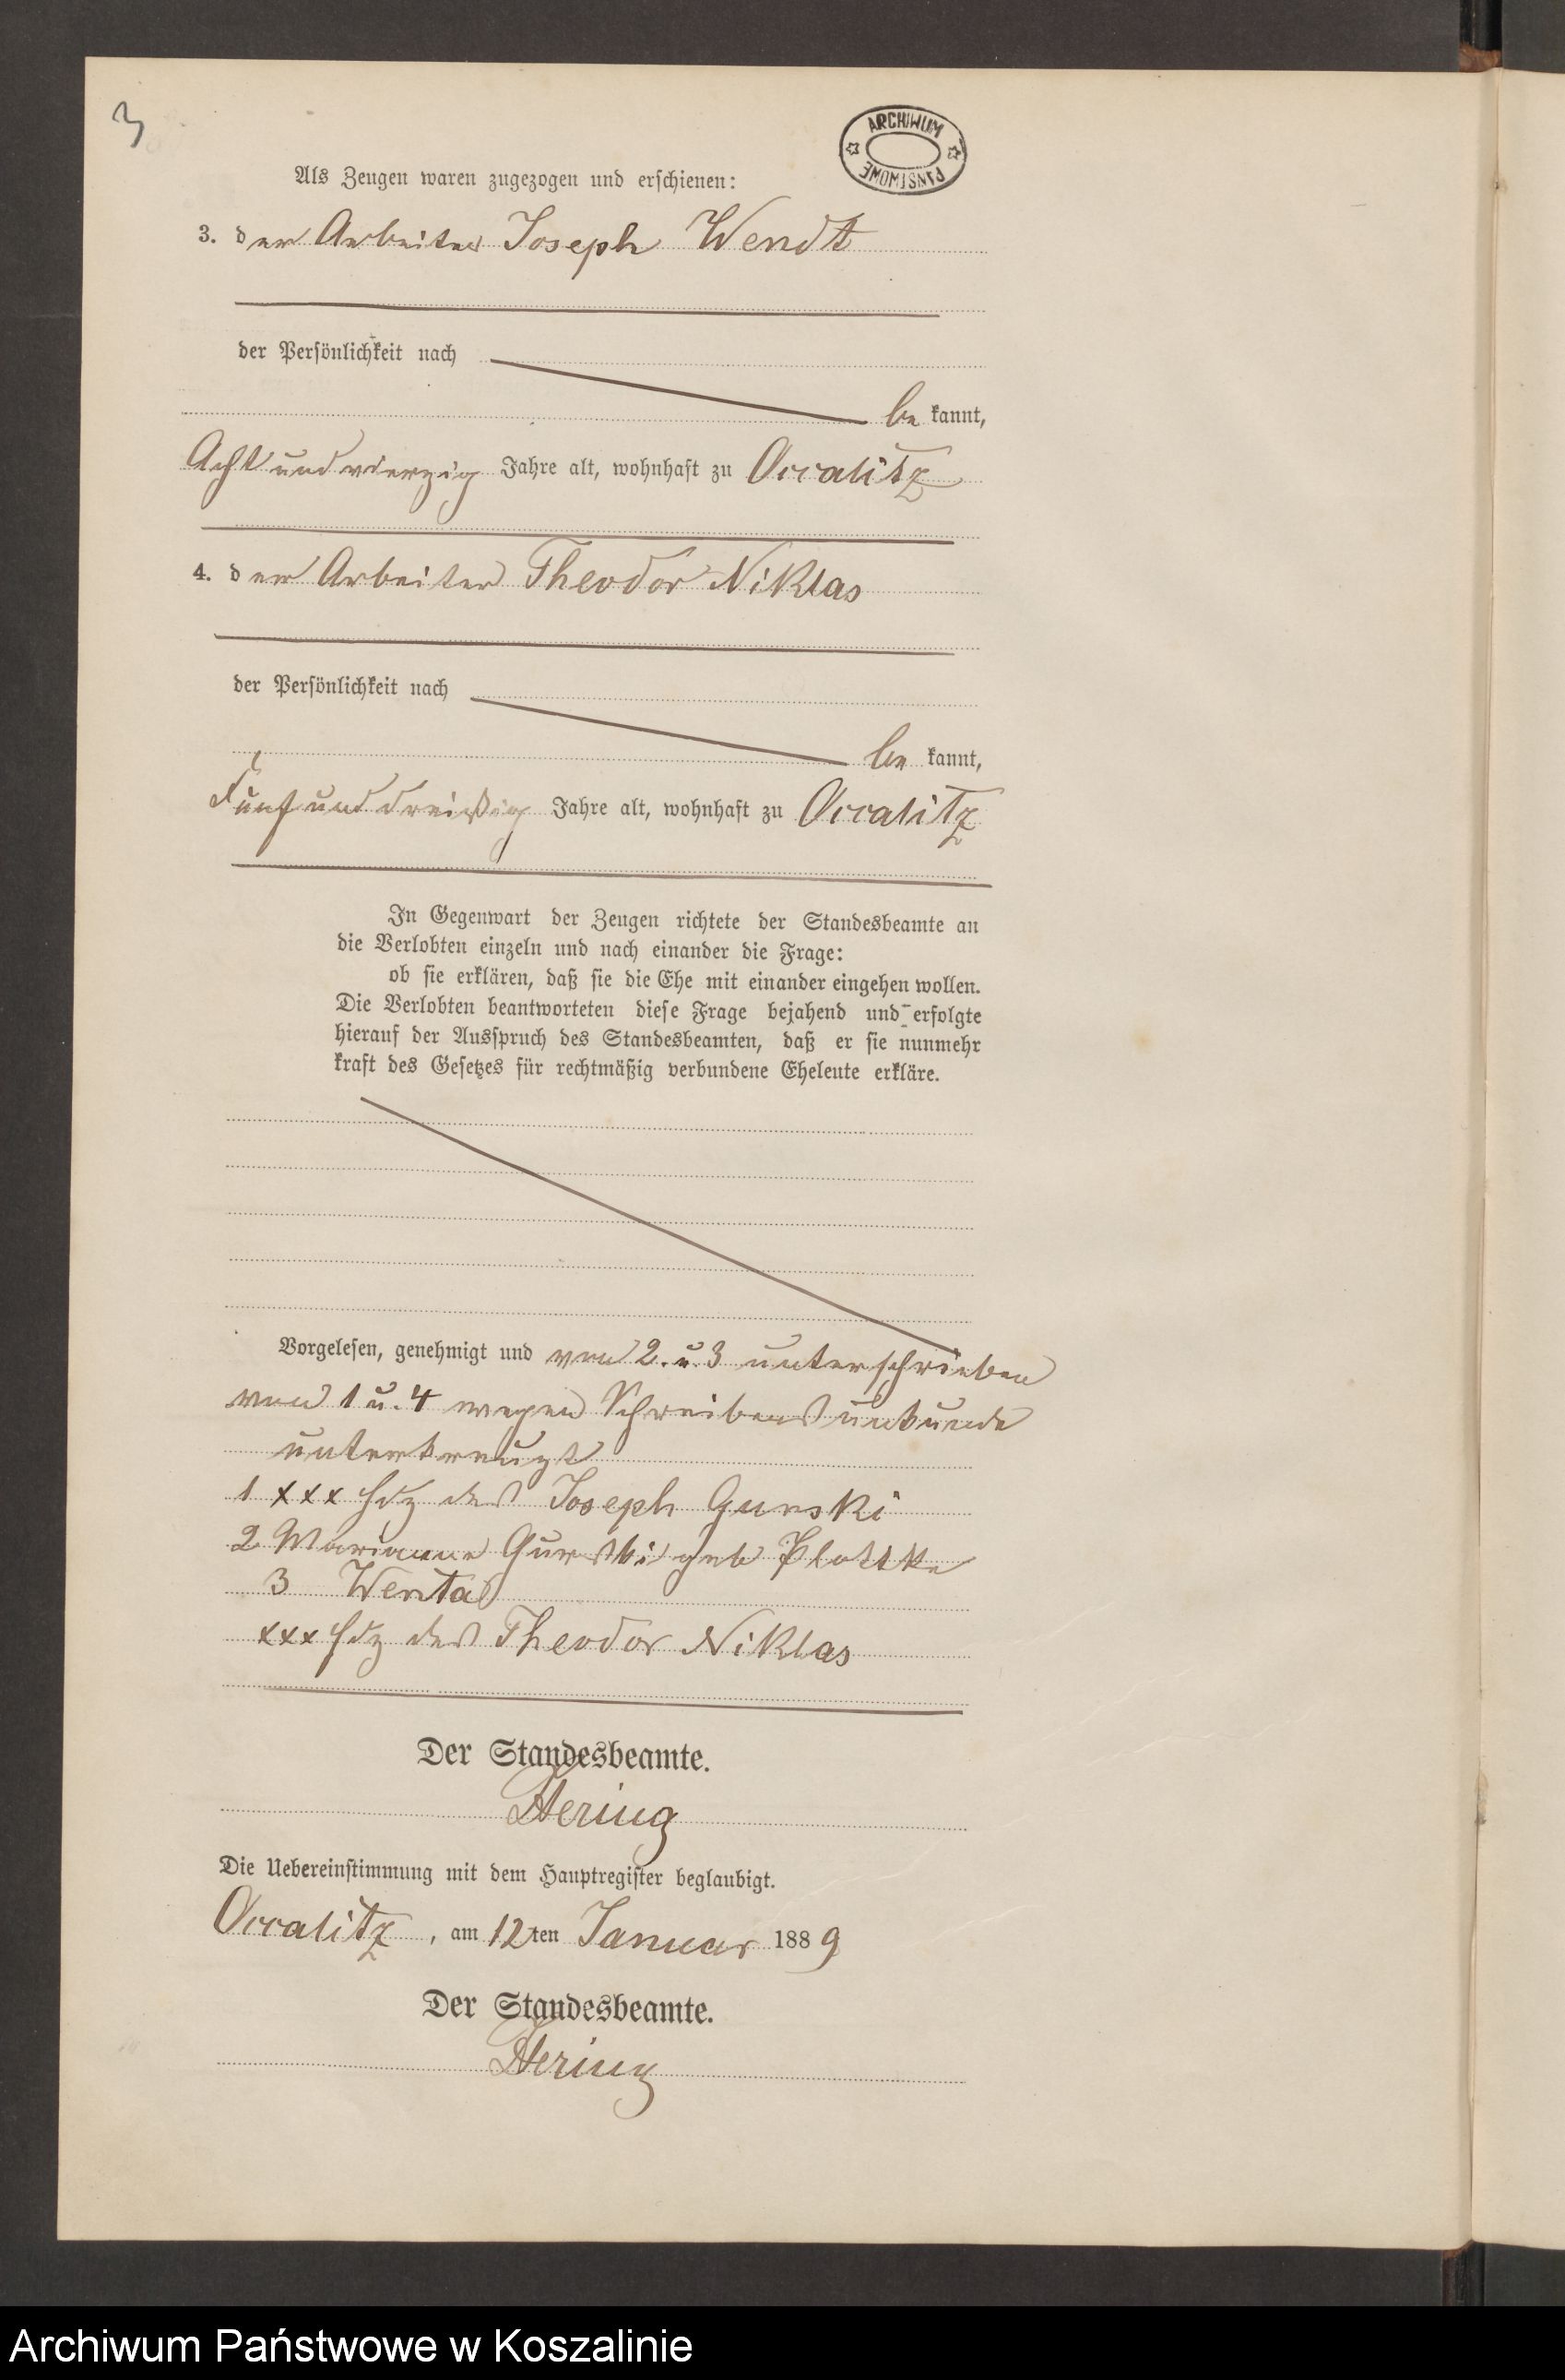 3
ARCHIWUM
PAŃSTWOWE
Als Zeugen waren zugezogen und erschienen:
3. der Arbeiter Joseph Wendt
der Persönlichkeit nach
be kannt,
Acht und vierzig Jahre alt, wohnhaft zu Occalitz
4. der Arbeiter Theodor Niklas
der Persönlichkeit nach
be kannt,
Fünf und dreißig Jahre alt, wohnhaft zu Occalitz
In Gegenwart der Zeugen richtete der Standesbeamte an
die Verlobten einzeln und nach einander die Frage:
ob sie erklären, daß sie die Ehe mit einander eingehen wollen.
Die Verlobten beantworteten diese Frage bejahend und erfolgte
hierauf der Ausspruch des Standesbeamten, daß er sie nunmehr
kraft des Gesetzes für rechtmäßig verbundene Eheleute erkläre.
Vorgelesen, genehmigt und von 2. u. 3 unterschrieben
von 1 u. 4 wegen Schreibensunkunde
unterkreuzt
1 xxx Hdz des Joseph Gurski
2 Marianne Gurski geb
3 Wenta
xxx Hdz des Theodor Niklas
Der Standesbeamte.
Hering
Die Uebereinstimmung mit dem Hauptregister beglaubigt.
Occalitz, am 12ten Januar 1889
Der Standesbeamte.
Hering
Archiwum Państwowe w Koszalinie